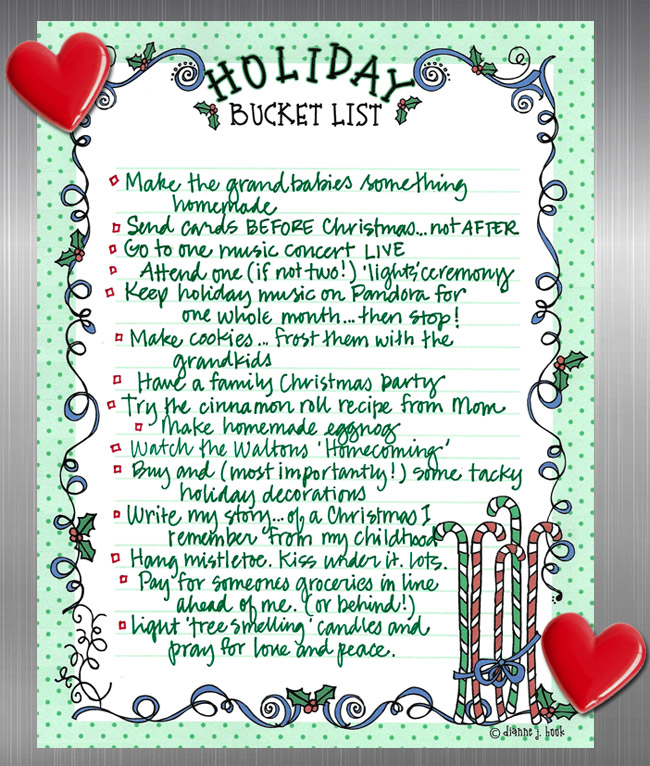 HOLIDAY
BUCKET LIST
Make the grandbabies something
homemade
Send cards BEFORE Christmas...not AFTER
Go to one music concert LIVE
Attend one (if not two!) 'lights' ceremony
Keep holiday music on Pandora for
one whole month...then stop!
Make cookies... frost them with the
grandkids
Have a family Christmas party
Try the cinnamon roll recipe from Mom
Make homemade eggnog
Watch the Waltons 'Homecoming'
Buy and (most importantly!) some tacky
holiday decorations
Write my story...of a Christmas I
remember from my childhood
Hang mistletoe. Kiss under it. lots.
Pay for someones groceries in line
ahead of me. (or behind!)
light 'tree smelling' candles and
pray for love and peace.
© dianne j. hook